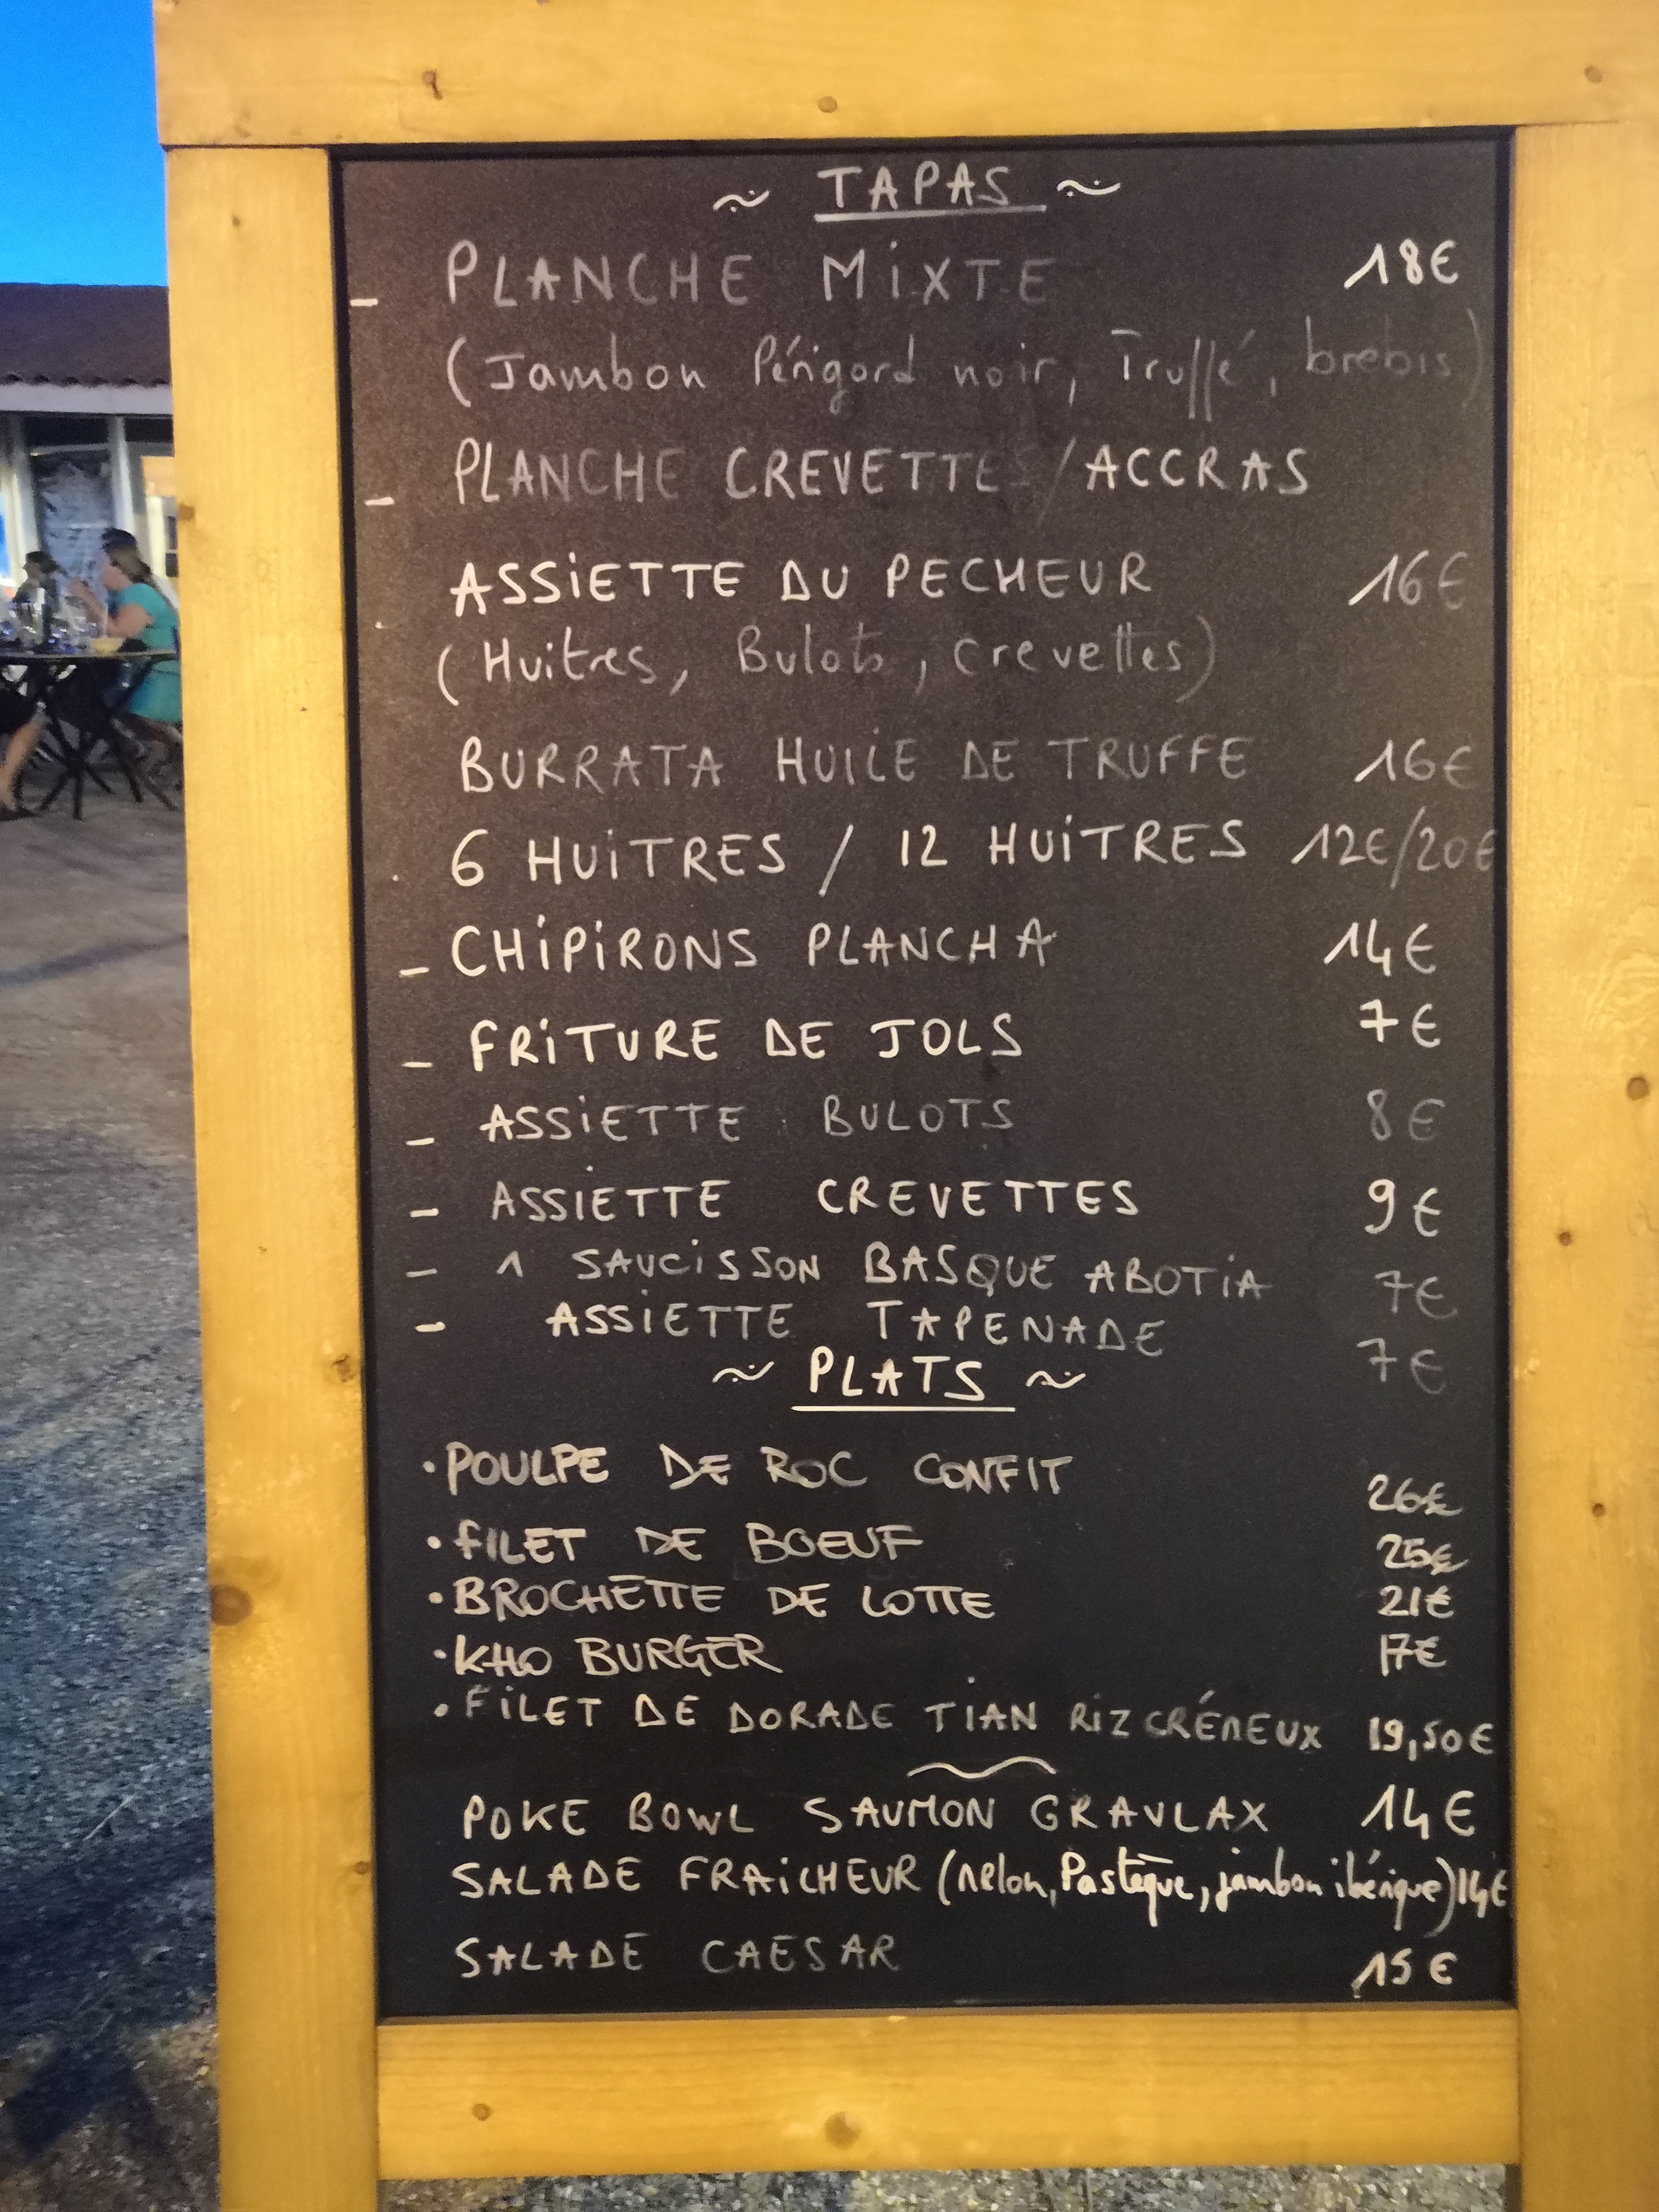 ~ TAPAS ~
- PLANCHE MIXTE 18€
(Jambon Périgord noir, Truffé, brebis)
- PLANCHE CREVETTES/ACCRAS
ASSIETTE DU PECHEUR 16€
(Huitres, Bulots, crevettes)
BURRATA HUILE DE TRUFFE 16€
6 HUITRES / 12 HUITRES 12€/20€
- CHIPIRONS PLANCHA 14€
- FRITURE DE JOLS 7€
- ASSIETTE BULOTS 8€
- ASSIETTE CREVETTES 9€
- 1 SAUCISSON BASQUE ABOTIA 7€
- ASSIETTE TAPENADE 7€
~ PLATS ~
• POULPE DE ROC CONFIT 26€
• FILET DE BOEUF 25€
• BROCHETTE DE LOTTE 21€
• KHO BURGER 17€
• FILET DE DORADE TIAN RIZ CRÉMEUX 19,50€
POKE BOWL SAUMON GRAVLAX 14€
SALADE FRAICHEUR (melon, Pastèque, jambon ibérique) 14€
SALADE CAESAR 15€